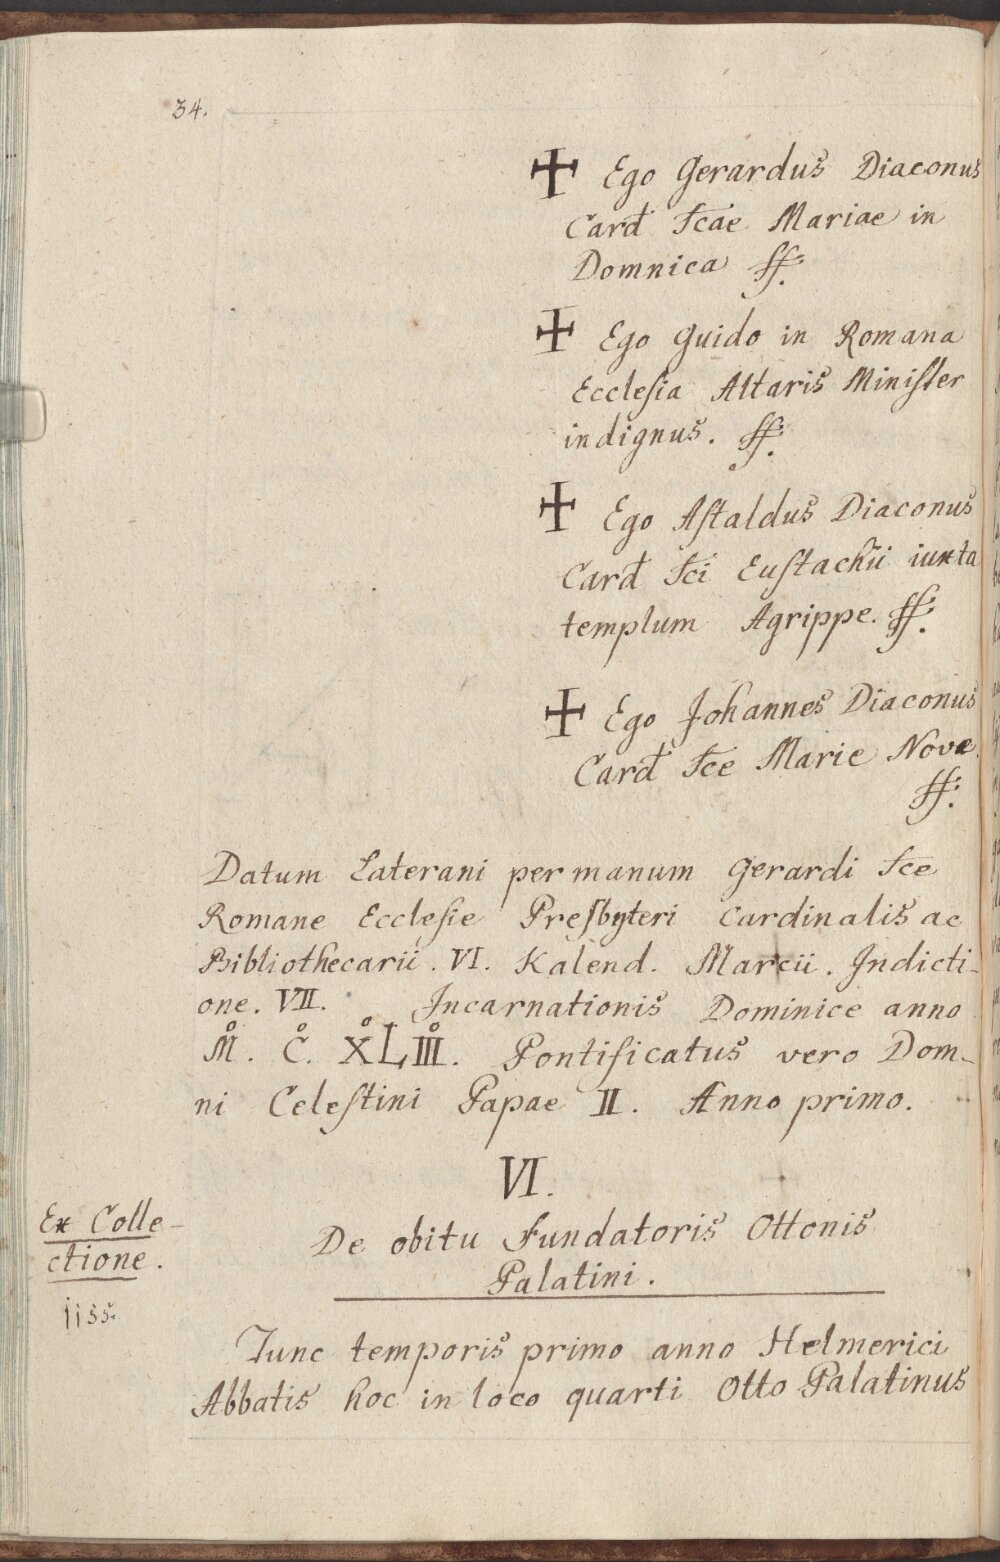 34.
✠ Ego Gerardus Diaconus
Card Scae Mariae in
Domnica ff:
✠ Ego Guido in Romana
Ecclesia Altaris Minister
indignus. ff:
✠ Ego Astaldus Diaconus
Card Sci Eustachii iuxta
templum Agrippe. ff:
✠ Ego Johannes Diaconus
Card Sce Marie Nove
ff:
Datum Laterani per manum Gerardi Sce
Romane Ecclesie Presbyteri Cardinalis ac
Bibliothecarii. VI. Kalend. Marcii. Indicti-
one. VII. Incarnationis Dominice anno
M̊. C̊. X̊LIII̊. Pontificatus vero Dom-
ni Celestini Papae II. Anno primo.
VI.
De obitu Fundatoris Ottonis
Palatini.
Ex Colle-
ctione.
1155.
Tunc temporis primo anno Helmerici
Abbatis hoc in loco quarti Otto Palatinus